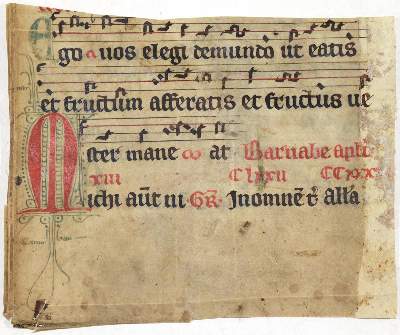 Ego uos elegi de mundo ut eatis
et fructum afferatis et fructus ue
ster maneat Barnabe apli
xiii Clxxii CCxxx
Michi aut ni GR. In omnem t alla